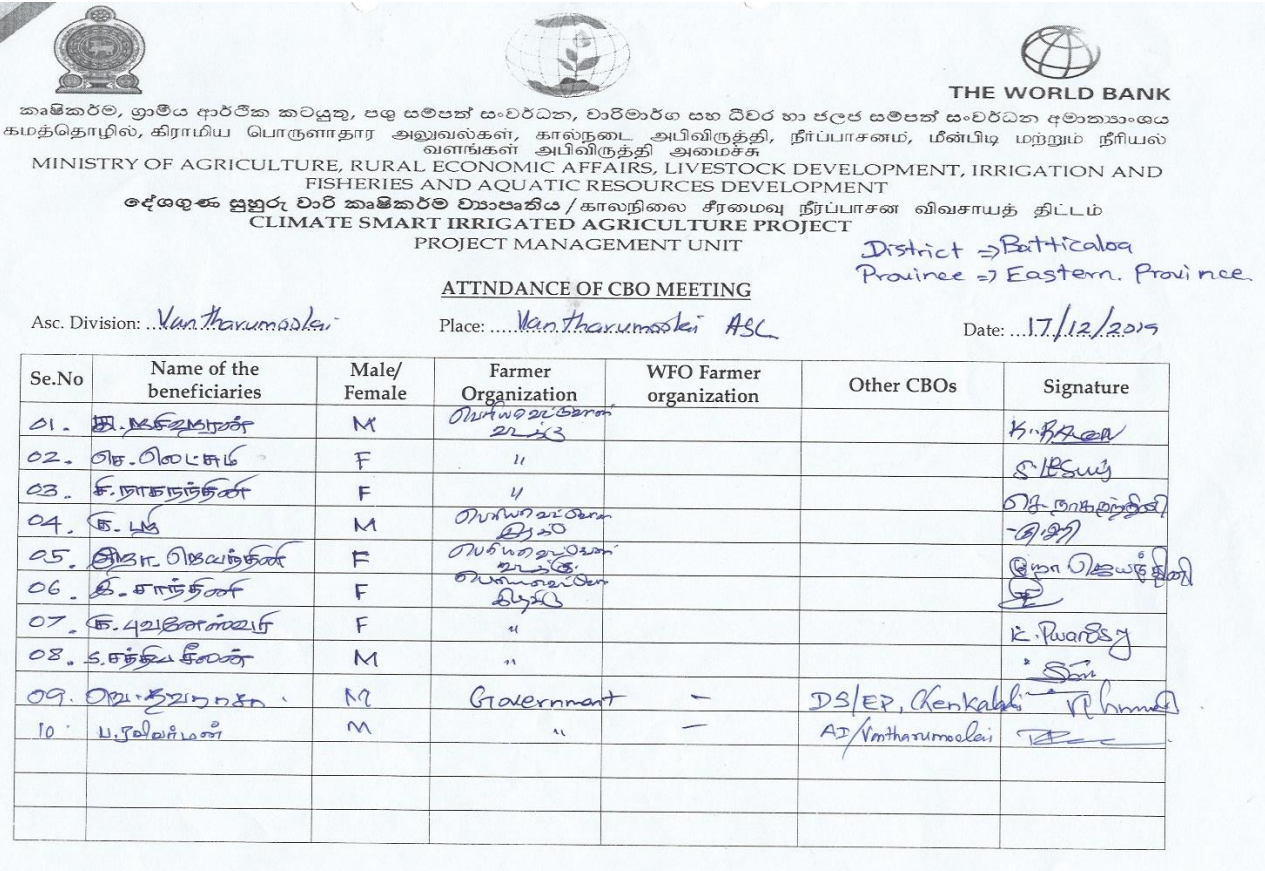 THE WORLD BANK
කෘෂිකර්ම, ග්‍රාමීය ආර්ථික කටයුතු, පශු සම්පත් සංවර්ධන, වාරිමාර්ග සහ ධීවර හා ජලජ සම්පත් සංවර්ධන අමාත්‍යාංශය
கமத்தொழில், கிராமிய பொருளாதார அலுவல்கள், கால்நடை அபிவிருத்தி, நீர்ப்பாசனம், மீன்பிடி மற்றும் நீரியல்
வளங்கள் அபிவிருத்தி அமைச்சு
MINISTRY OF AGRICULTURE, RURAL ECONOMIC AFFAIRS, LIVESTOCK DEVELOPMENT, IRRIGATION AND
FISHERIES AND AQUATIC RESOURCES DEVELOPMENT
දේශගුණ සුහුරු වාරි කෘෂිකර්ම ව්‍යාපෘතිය / காலநிலை சீரமைவு நீர்ப்பாசன விவசாயத் திட்டம்
CLIMATE SMART IRRIGATED AGRICULTURE PROJECT
PROJECT MANAGEMENT UNIT
District => Batticaloa
Province => Eastern. Province
ATTNDANCE OF CBO MEETING
Asc. Division: Vantharumoolai Place: Vantharumoolai ASC Date: 17/12/2019
Se.No Name of the beneficiaries Male/ Female Farmer Organization WFO Farmer organization Other CBOs Signature
01. M
02. செ.லெட்சுமி F "
03. சி.நாகநந்தினி F " செ.நாகநந்தினி
04. M
05. ஜெயந்தினி F ஜெயந்தினி
06. இ.சாந்தினி F
07. க.புவனேஸ்வரி F "
08. சத்தியசீலன் M "
09. M Government - DS/EP, Chenkalady
10 ப.ரவிவர்மன் M " - AI/Vantharumoolai